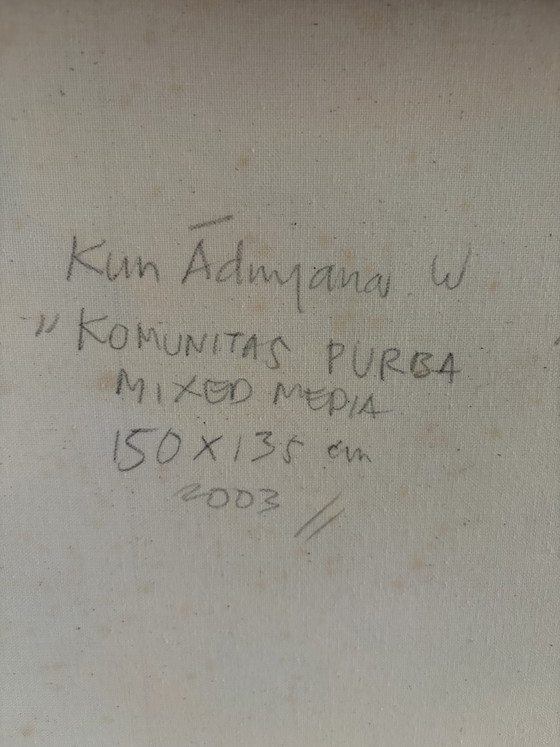 Kun Ādnyana W
"KOMUNITAS PURBA
MIXED MEDIA
150 X 135 cm
2003 //